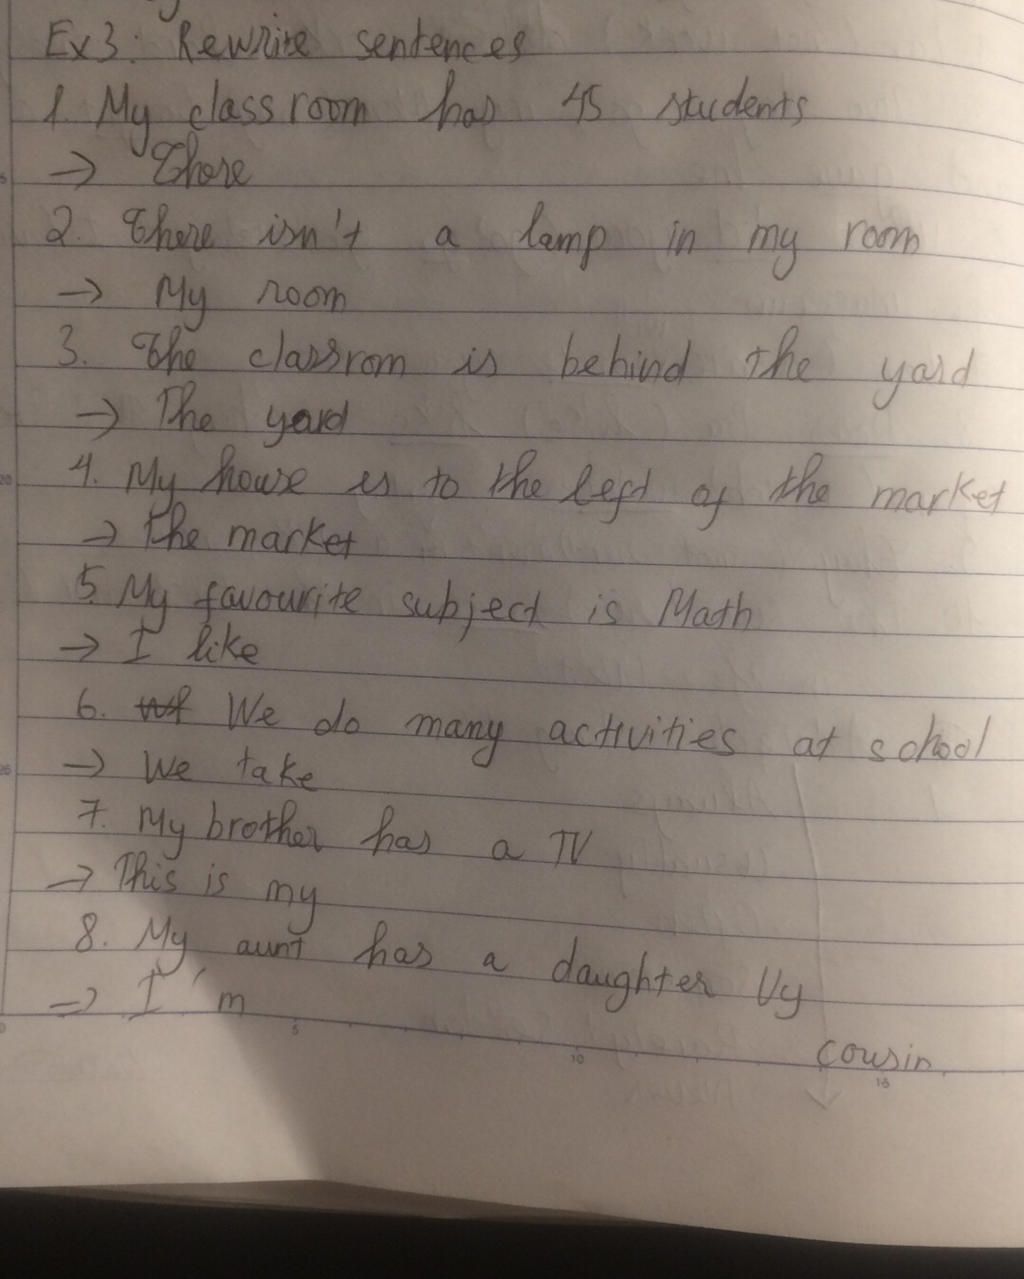 Ex3: Rewrite sentences
1. My classroom has 45 students
→ There
2. There isn't a lamp in my room
→ My room
3. The classrom is behind the yard
→ The yard
4. My house is to the left of the market
→ The market
5. My favourite subject is Math
→ I like
6. We do many activities at school
→ We take
7. My brother has a TV
→ This is my
8. My aunt has a daughter Vy
→ I'm
cousin
5 10 15